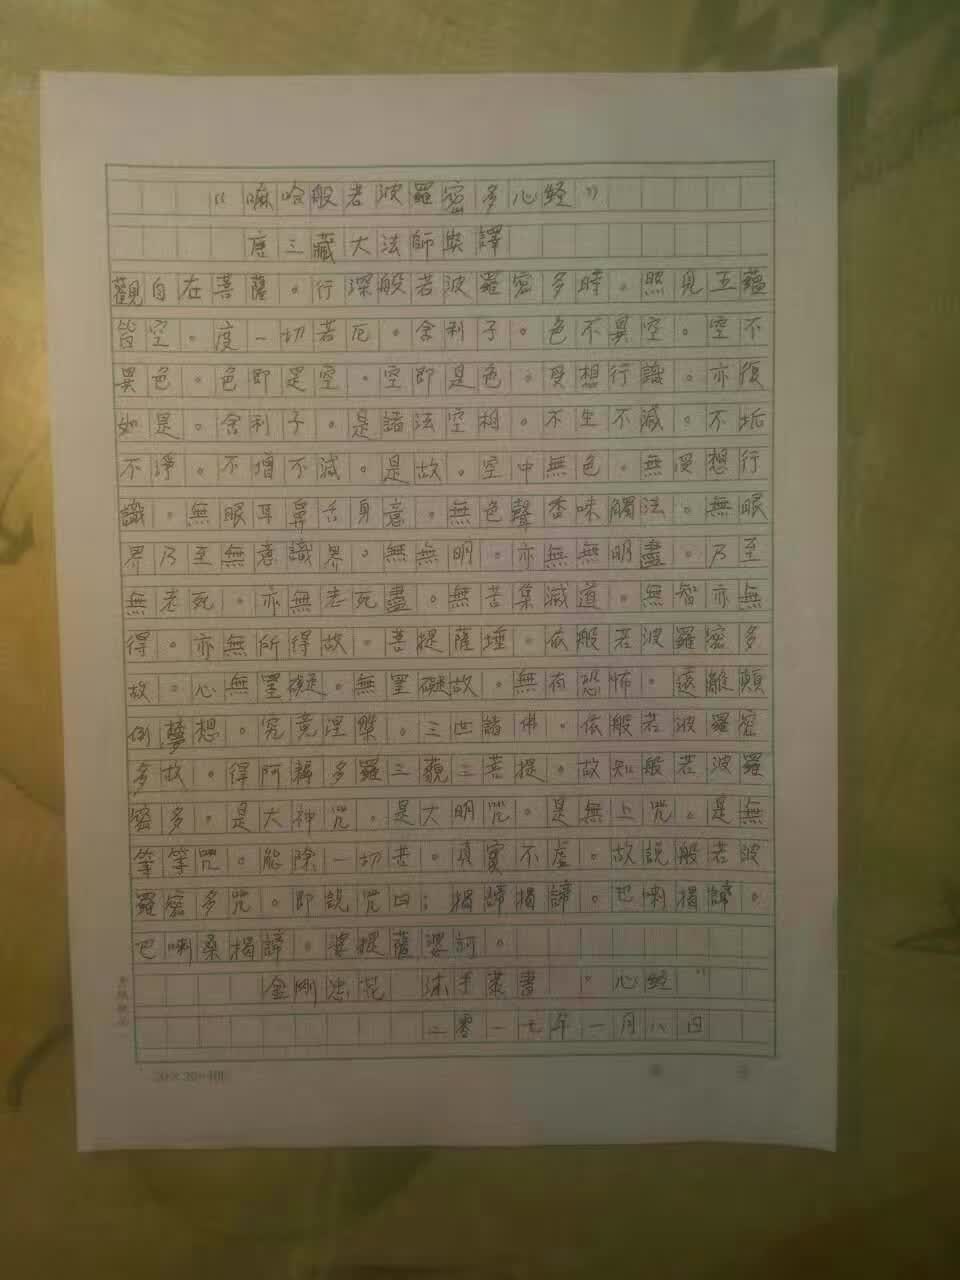 “嘛哈般若波羅密多心經”
唐三藏大法師奘譯
觀自在菩薩。行深般若波羅密多時。照見五蘊
皆空。度一切若厄。舍利子。色不異空。空不
異色。色即是空。空即是色。受想行識。亦復
如是。舍利子。是諸法空相。不生不滅。不垢
不淨。不增不減。是故。空中無色。無受想行
識。無眼耳鼻舌身意。無色聲香味觸法。無眼
界乃至無意識界。無無明。亦無無明盡。乃至
無老死。亦無老死盡。無苦集滅道。無智亦無
得。亦無所得故。菩提薩埵。依般若波羅密多
故。心無罣礙。無罣礙故。無有恐怖。遠離顛
倒夢想。究竟涅槃。三世諸佛。依般若波羅密
多故。得阿耨多羅三藐三菩提。故知般若波羅
密多。是大神咒。是大明咒。是無上咒。是無
等等咒。能除一切苦。真實不虛。故説般若波
羅密多咒。即説咒曰：揭諦揭諦。巴喇揭諦。
巴喇桑揭諦。菩提薩婆訶。
金剛忠花 沫手恭書 “心經”
二零一七年一月八日
20×20=400